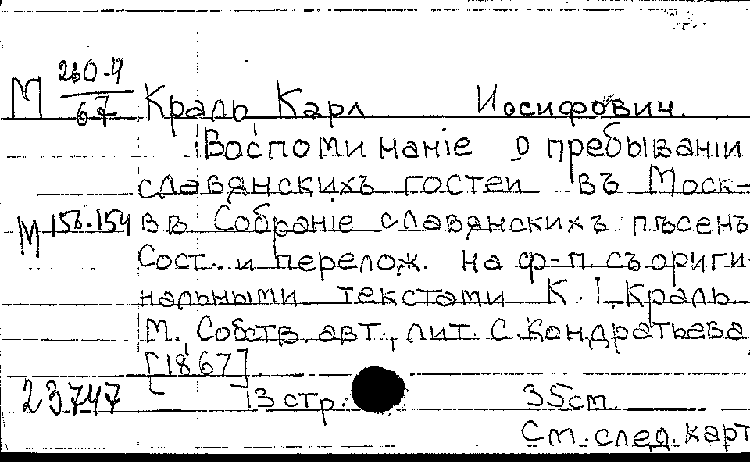 М 260-4/67 Краль, Карл Иосифович.
Воспоминаніе о пребываніи
славянскихъ гостей въ Моск-
М 156.154 вѣ Собраніе славянскихъ пѣсенъ
Сост. и перелож. на ф-п. съ ориги
нальными текстами К. І. Краль
М., Собств. авт., лит. С. Кондратьева
[1867]
23747 13 стр. 35 cm.
См. след. карт